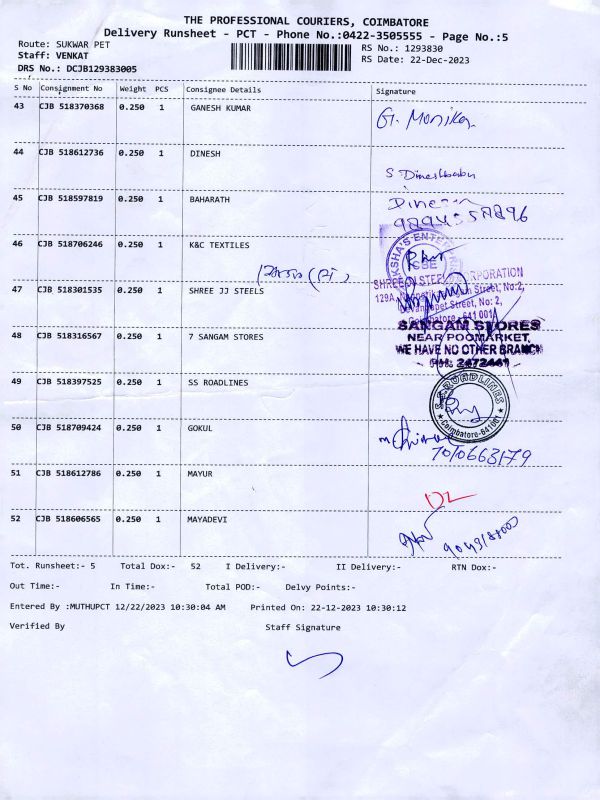 THE PROFESSIONAL COURIERS, COIMBATORE
Delivery Runsheet - PCT - Phone No.:0422-3505555 - Page No.:5
Route: SUKWAR PET
RS No.: 1293830
Staff: VENKAT
RS Date: 22-Dec-2023
DRS No.: DCJB129383005
S No Consignment No Weight PCS Consignee Details Signature
43 CJB 518370368 0.250 1 GANESH KUMAR
G. Monika
44 CJB 518612736 0.250 1 DINESH
S Dineshbabu
45 CJB 518597819 0.250 1 BAHARATH
46 CJB 518706246 0.250 1 K&C TEXTILES
47 CJB 518301535 0.250 1 SHREE JJ STEELS
STEEL CORPORATION
Street, No:2,
Coimbatore - 641 001
48 CJB 518316567 0.250 1 7 SANGAM STORES
SANGAM STORES
NEAR POOMARKET,
WE HAVE NO OTHER BRANCH
2472441
49 CJB 518397525 0.250 1 SS ROADLINES
S.S. ROADLINES
Coimbatore-641001
50 CJB 518709424 0.250 1 GOKUL
7010663179
51 CJB 518612786 0.250 1 MAYUR
52 CJB 518606565 0.250 1 MAYADEVI
Tot. Runsheet:- 5 Total Dox:- 52 I Delivery:- II Delivery:- RTN Dox:-
Out Time:- In Time:- Total POD:- Delvy Points:-
Entered By :MUTHUPCT 12/22/2023 10:30:04 AM Printed On: 22-12-2023 10:30:12
Verified By Staff Signature